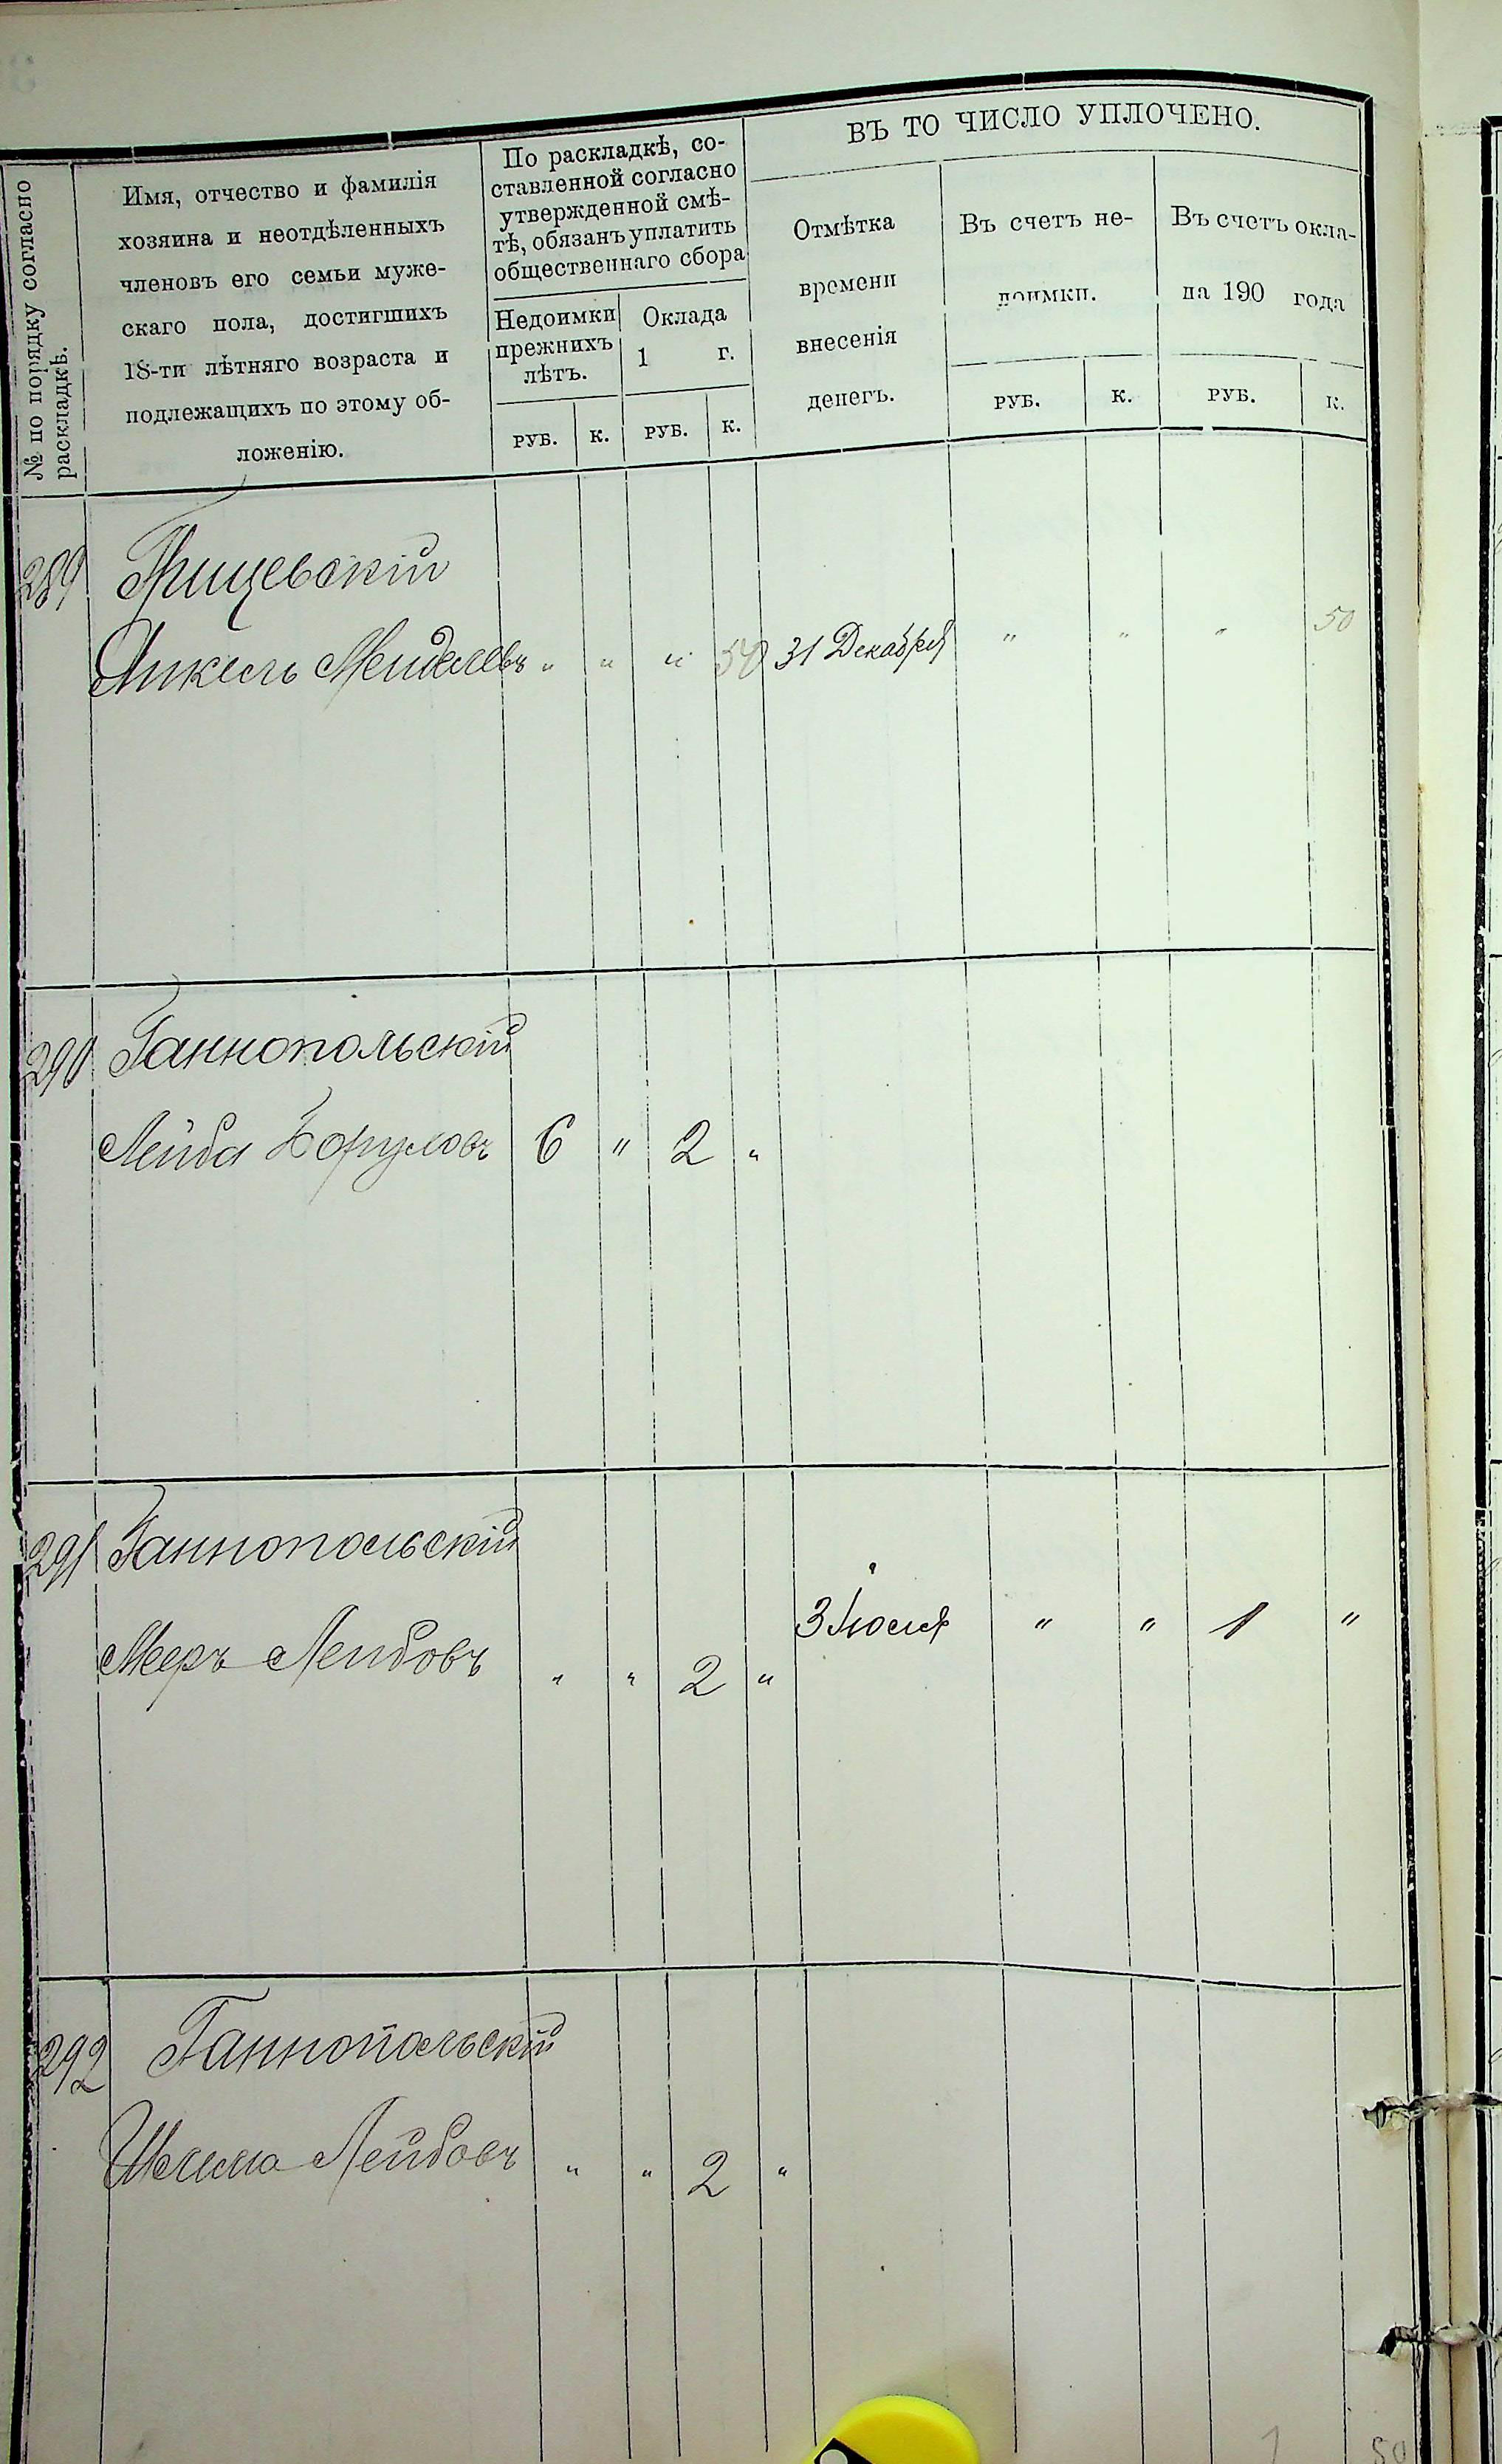 № по порядку согласно
раскладкѣ.
Имя, отчество и фамилія
хозяина и неотдѣленныхъ
членовъ его семьи муже-
скаго пола, достигшихъ
18-ти лѣтняго возраста и
подлежащихъ по этому об-
ложенію.
По раскладкѣ, со-
ставленной согласно
утвержденной смѣ-
тѣ, обязанъ уплатить
общественнаго сбора
Недоимки
прежнихъ
лѣтъ.
Оклада
1 г.
РУБ. К. РУБ. К.
ВЪ ТО ЧИСЛО УПЛОЧЕНО.
Отмѣтка
времени
внесенія
денегъ.
Въ счетъ не-
доимки.
РУБ. К.
Въ счетъ окла-
да 190 года
РУБ. К.
289 Грищевскій
Анкель Менделевъ " " " 50 31 Декабря " " " 50
290 Ганнопольскій
Лейба Боруховъ 6 " 2 "
291 Ганнопольскій
Мееръ Лейбовъ " " 2 " 3 Іюля " " 1 "
292 Ганнопольскій
Шлема Лейбовъ " " 2 "
1 50